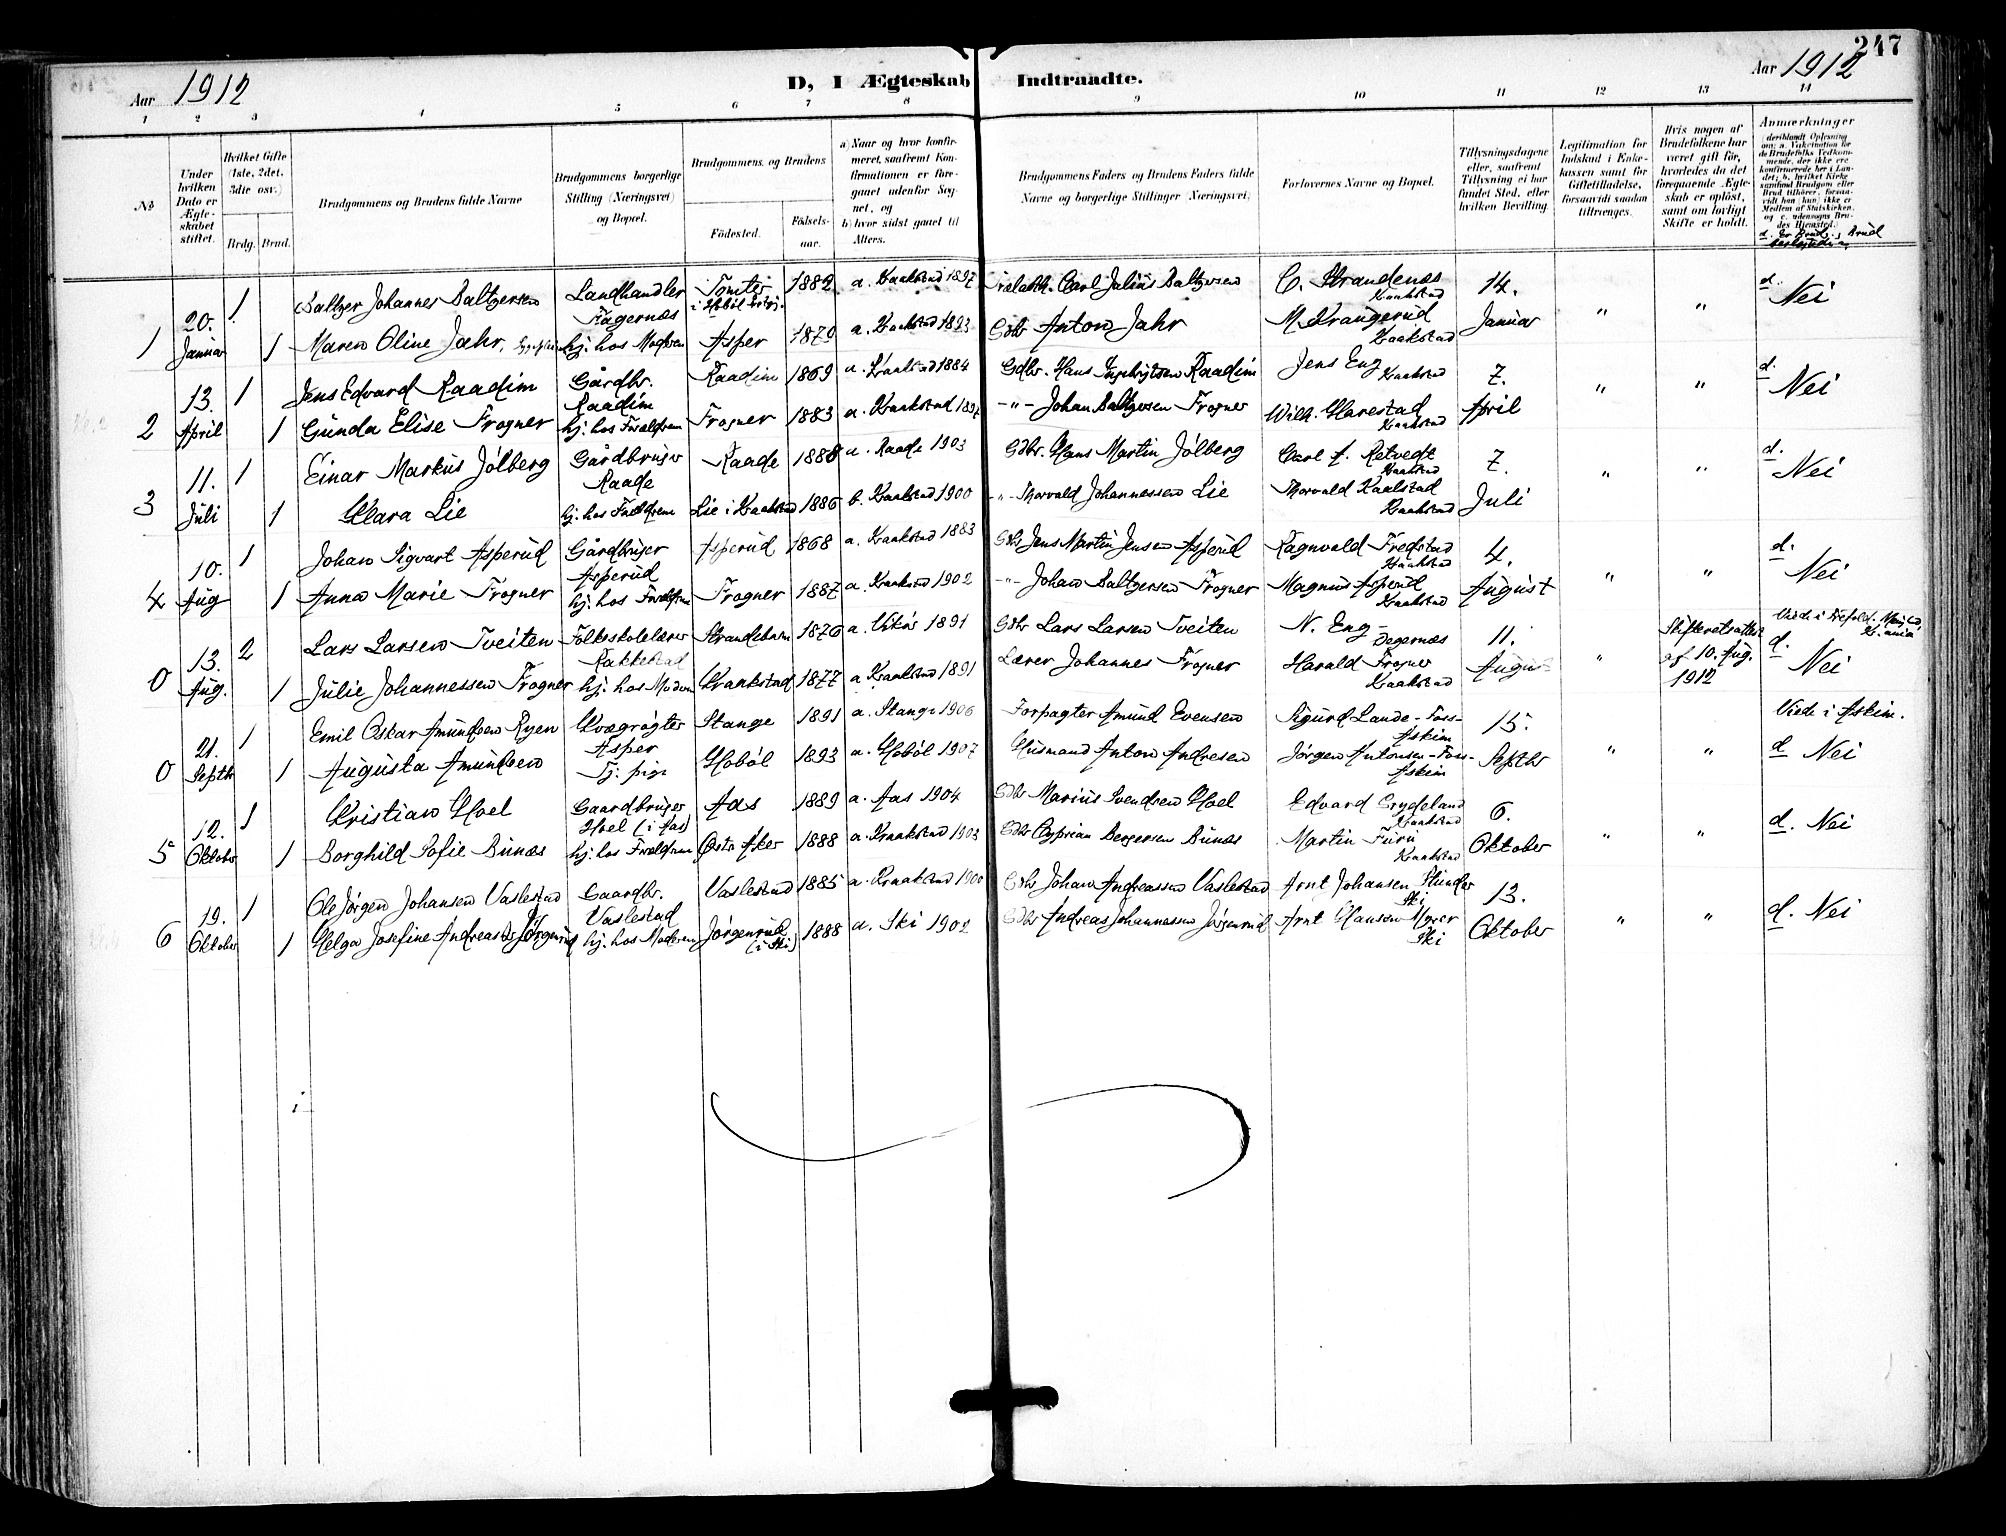 247
Aar 1912
D, I Ægteskab Indtraadte.
Aar 1912
1 2 3 4 5 6 7 8 9 10 11 12 13 14
№
Under hvilken Dato er Ægteskabet stiftet.
Hvilket Gifte (1ste, 2det, 3die osv.)
Brdg. Brud.
Brudgommens og Brudens fulde Navne
Brudgommens borgerlige Stilling (Næringsvei) og Bopæl.
Brudgommens og Brudens
Fødested.
Fødselsaar.
a) Naar og hvor konfirmeret, saafremt Konfirmationen er foregaaet udenfor Sognet, og
b) hvor sidst gaaet til Alters.
Brudgommens Faders og Brudens Faders fulde Navne og borgerlige Stillinger (Næringsvei)
Forlovernes Navne og Bopæl.
Tillysningsdagene eller, saafremt Tillysning ei har fundet Sted, efter hvilken Bevilling.
Legitimation for Indskud i Enkekassen samt for Giftetilladelse, forsaavidt saadan tiltrænges.
Hvis nogen af Brudefolkene har været gift før, hvorledes da det foregaaende Ægteskab er opløst, samt om lovligt Skifte er holdt.
Anmærkninger
1 20. Januar
1 Baltzer Johannes Baltzersen Landhandler Fagernæs Tomter i Hobøl 1882 a. Kraakstad 1897 Carl Julius Baltzersen C. Strandenæs Kraakstad 14. " " d. Nei
1 Maren Oline Jahr, hj. hos Moderen Asper 1879 a. Kraakstad 1893 Gdbr Anton Jahr M. Krangerud Kraakstad Januar
2 13. April
1 Jens Edvard Raadim Gårdbr. Raadim Raadim 1869 a. Kraakstad 1884 Gdbr. Hans Raadim Jens Eng Kraakstad 7. " " d. Nei
1 Gunda Elise Frogner hj. hos Forældrene Frogner 1883 a. Kraakstad -"- Johan Baltzersen Frogner Wilh. Harestad Kraakstad April
3 11. Juli
1 Einar Markus Jølberg Gårdbruger Raade Raade 1888 a. Raade 1903 Gdbr. Hans Martin Jølberg Carl A. Retvedt Kraakstad 7. " " d. Nei
1 Klara Lie hj. hos Forældrene Lie i Kraakstad 1886 b. Kraakstad 1900 -"- Thorvald Johannessen Lie Thorvald Kaalstad Kraakstad Juli
4 10. Aug
1 Johan Sigvart Asperud Gårdbruger Asperud Asperud 1868 a. Kraakstad 1883 Gdbr Jens Martin Jensen Asperud Ragnvald Fredstad Kraakstad 4. " " d. Nei
1 Anna Marie Frogner hj. hos Forældrene Frogner 1887 a. Kraakstad 1902 -"- Johan Baltzersen Frogner Magnus Asperud Kraakstad August
0 13. Aug.
2 Lars Larsen Tveiten Folkeskolelærer Rakkestad Strandebarm 1876 a. Vikør 1891 Gdbr Lars Larsen Tveiten N. Eng Degernæs 11. " Skifteretsattest af 10. Aug. 1912 Viede i d. Nei
1 Julie Johannessen Frogner hj. hos Moderen Kraakstad 1877 a. Kraakstad 1891 Lærer Johannes Frogner Harald Frogner Kraakstad August
0 21. Septbr
1 Emil Oskar Amundsen Ryen Kvægrøgter Asper Stange 1891 a. Stange 1906 Forpagter Amund Evensen Sigurd Lande - Foss - Askim 15. " " Viede i Askim. d Nei
1 Augusta Amundsen Tj. pige Hobøl 1893 a. Hobøl 1907 Husmand Anton Andresen Jørgen Antonsen - Foss - Askim Septbr
5 12. Oktober
1 Kristian Hoel Gaardbruger Hoel (i Aas) Aas 1889 a. Aas 1904 Gdbr Marius Svendsen Hoel Edvard Grydeland Kraakstad 6. " " d. Nei
1 Borghild Sofie Bunæs hj. hos Forældrene Østr. Aker 1888 a. Kraakstad 1903 Gdbr Cyprian Bergersen Bunæs Martin Furu Kraakstad Oktober
6 19. Oktober
1 Ole Jørgen Johansen Vaslestad Gaardbr. Vaslestad Vaslestad 1885 a. Kraakstad 1900 Gdbr Johan Andreassen Vaslestad Arnt Johansen Ski 13. " " d. Nei
1 Helga Josefine Andreasd. Jørgenrud hj. hos Moderen Jørgenrud (i Ski) 1888 a. Ski 1902 Gdbr Andreas Johannessen Jørgenrud Arnt Hansen Myrer Ski Oktober